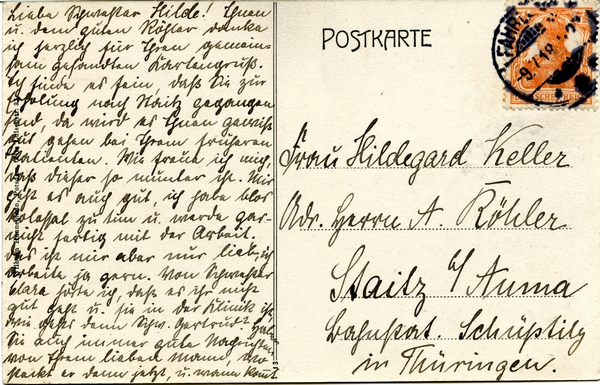 Liebe Schwester Hilde! Ihnen
u. dem guten Köhler danke
ich herzlich für Ihren gemein-
sam gesandten Kartengruß.
Ich finde es fein, daß Sie zur
Erholung nach Staitz gegangen
sind, da wird es Ihnen gewiß
gut gehen bei Ihrem früheren
Patienten. Wie freue ich mich,
daß dieser so munter ist. Mir
geht es auch gut, ich habe blos
kolossal zu tun u. werde gar-
nicht fertig mit der Arbeit.
Das ist mir aber nur lieb, ich
arbeite ja gern. Von Schwester
Clara hörte ich, daß es ihr nicht
gut geht u. sie in der Klinik ist.
Wie geht's denn Schw. Gertrud? Haben
Sie auch immer gute Nachrichten
von Ihrem lieben Mann, wo
steckt er denn jetzt, u. wann kommt
POSTKARTE
9.7.18
Frau Hildegard Keller
Adr. Herrn A. Köhler
Staitz b/ Auma
Bahnstat. Schüptitz
in Thüringen.